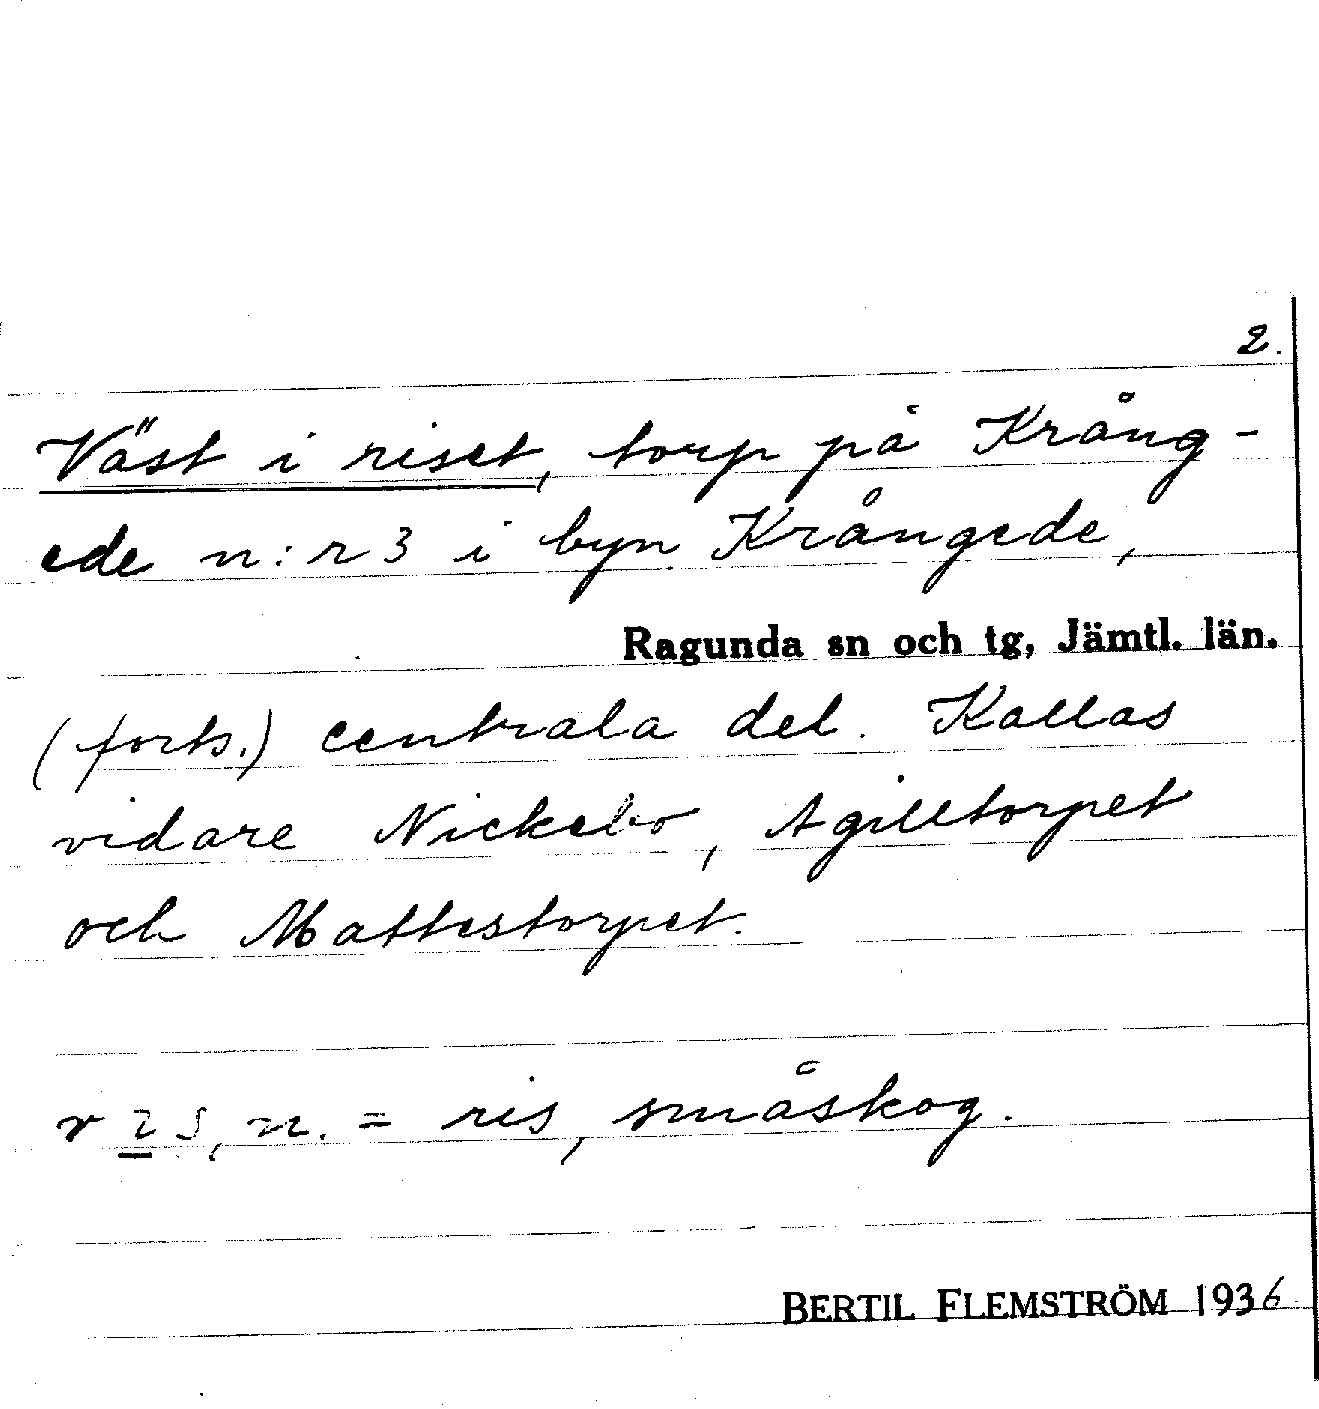 2.
Väst i riset, torp på Krång-
ede n:r 3 i byn Krångede,
Ragunda sn och tg, Jämtl. län.
(forts.) centrala del. Kallas
vidare Nickebo, Agilltorpet
och Mattestorpet.
n. = ris, småskog.
BERTIL FLEMSTRÖM 1936